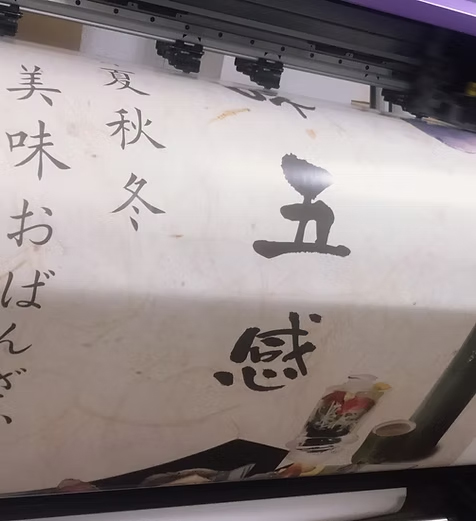 五感
夏秋冬
美味おばんざい